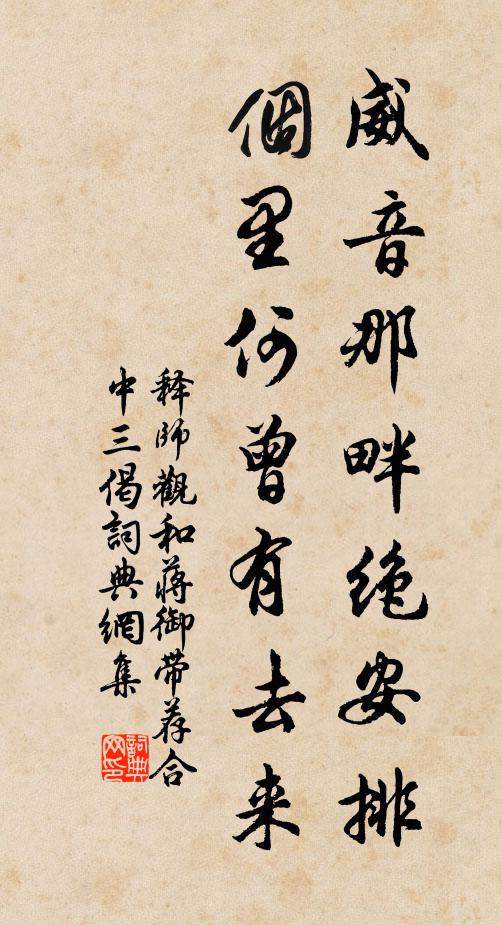 威音那畔绝安排
個里何曾有去来
释師觀和蒋御带荐合
中三偈詞典網集
詞典网印